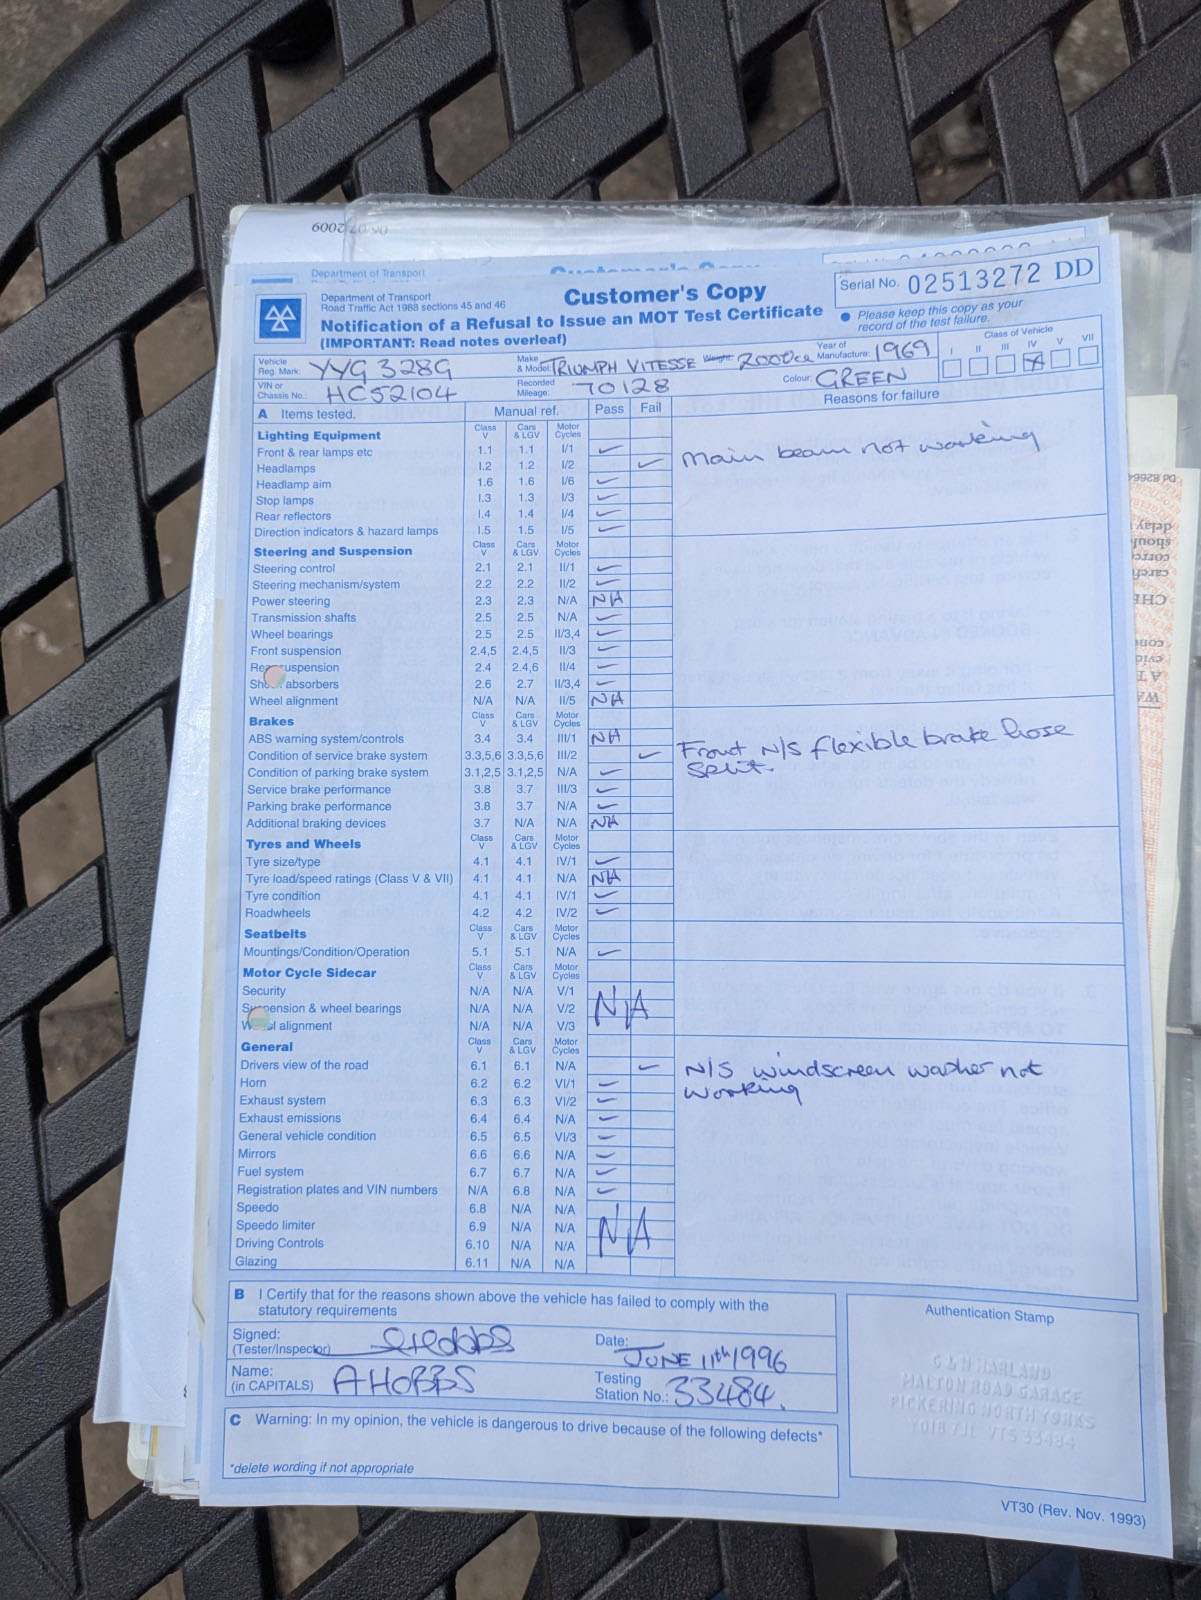 Department of Transport
Customer's Copy
Department of Transport
Road Traffic Act 1988 sections 45 and 46
Customer's Copy
Serial No. 02513272 DD
Notification of a Refusal to Issue an MOT Test Certificate
(IMPORTANT: Read notes overleaf)
● Please keep this copy as your
record of the test failure.
Vehicle
Reg. Mark: YYG 328G
Make
& Model: TRIUMPH VITESSE 2000cc
Year of
Manufacture: 1969
Class of Vehicle
I II III IV V VII
VIN or
Chassis No.: HC52104
Recorded
Mileage: 70128
Colour: GREEN
A Items tested. Manual ref. Pass Fail Reasons for failure
Lighting Equipment Class V Cars & LGV Motor Cycles
Front & rear lamps etc 1.1 1.1 I/1 ✓
Headlamps I.2 1.2 I/2 ✓ Main beam not working
Headlamp aim 1.6 1.6 I/6 ✓
Stop lamps I.3 1.3 I/3 ✓
Rear reflectors I.4 1.4 I/4 ✓
Direction indicators & hazard lamps I.5 1.5 I/5 ✓
Steering and Suspension Class V Cars & LGV Motor Cycles
Steering control 2.1 2.1 II/1 ✓
Steering mechanism/system 2.2 2.2 II/2 ✓
Power steering 2.3 2.3 N/A NA
Transmission shafts 2.5 2.5 N/A ✓
Wheel bearings 2.5 2.5 II/3,4 ✓
Front suspension 2.4,5 2.4,5 II/3 ✓
Rear suspension 2.4 2.4,6 II/4 ✓
Shock absorbers 2.6 2.7 II/3,4 ✓
Wheel alignment N/A N/A II/5 NA
Brakes Class V Cars & LGV Motor Cycles
ABS warning system/controls 3.4 3.4 III/1 NA
Condition of service brake system 3.3,5,6 3.3,5,6 III/2 ✓ Front N/S flexible brake hose
split.
Condition of parking brake system 3.1,2,5 3.1,2,5 N/A ✓
Service brake performance 3.8 3.7 III/3 ✓
Parking brake performance 3.8 3.7 N/A ✓
Additional braking devices 3.7 N/A N/A NA
Tyres and Wheels Class V Cars & LGV Motor Cycles
Tyre size/type 4.1 4.1 IV/1 ✓
Tyre load/speed ratings (Class V & VII) 4.1 4.1 N/A NA
Tyre condition 4.1 4.1 IV/1 ✓
Roadwheels 4.2 4.2 IV/2 ✓
Seatbelts Class V Cars & LGV Motor Cycles
Mountings/Condition/Operation 5.1 5.1 N/A ✓
Motor Cycle Sidecar Class V Cars & LGV Motor Cycles
Security N/A N/A V/1
Suspension & wheel bearings N/A N/A V/2 N/A
Wheel alignment N/A N/A V/3
General Class V Cars & LGV Motor Cycles
Drivers view of the road 6.1 6.1 N/A ✓ N/S windscreen washer not
working
Horn 6.2 6.2 VI/1 ✓
Exhaust system 6.3 6.3 VI/2 ✓
Exhaust emissions 6.4 6.4 N/A ✓
General vehicle condition 6.5 6.5 VI/3 ✓
Mirrors 6.6 6.6 N/A ✓
Fuel system 6.7 6.7 N/A ✓
Registration plates and VIN numbers N/A 6.8 N/A ✓
Speedo 6.8 N/A N/A
Speedo limiter 6.9 N/A N/A N/A
Driving Controls 6.10 N/A N/A
Glazing 6.11 N/A N/A
B I Certify that for the reasons shown above the vehicle has failed to comply with the
statutory requirements
Signed:
(Tester/Inspector)
Date: JUNE 11th 1996
Name:
(in CAPITALS) A HOBBS
Testing
Station No.: 33484.
C Warning: In my opinion, the vehicle is dangerous to drive because of the following defects*
*delete wording if not appropriate
Authentication Stamp
MALTON ROAD GARAGE
PICKERING NORTH YORKS
YO18 7JL VTS 33484
VT30 (Rev. Nov. 1993)